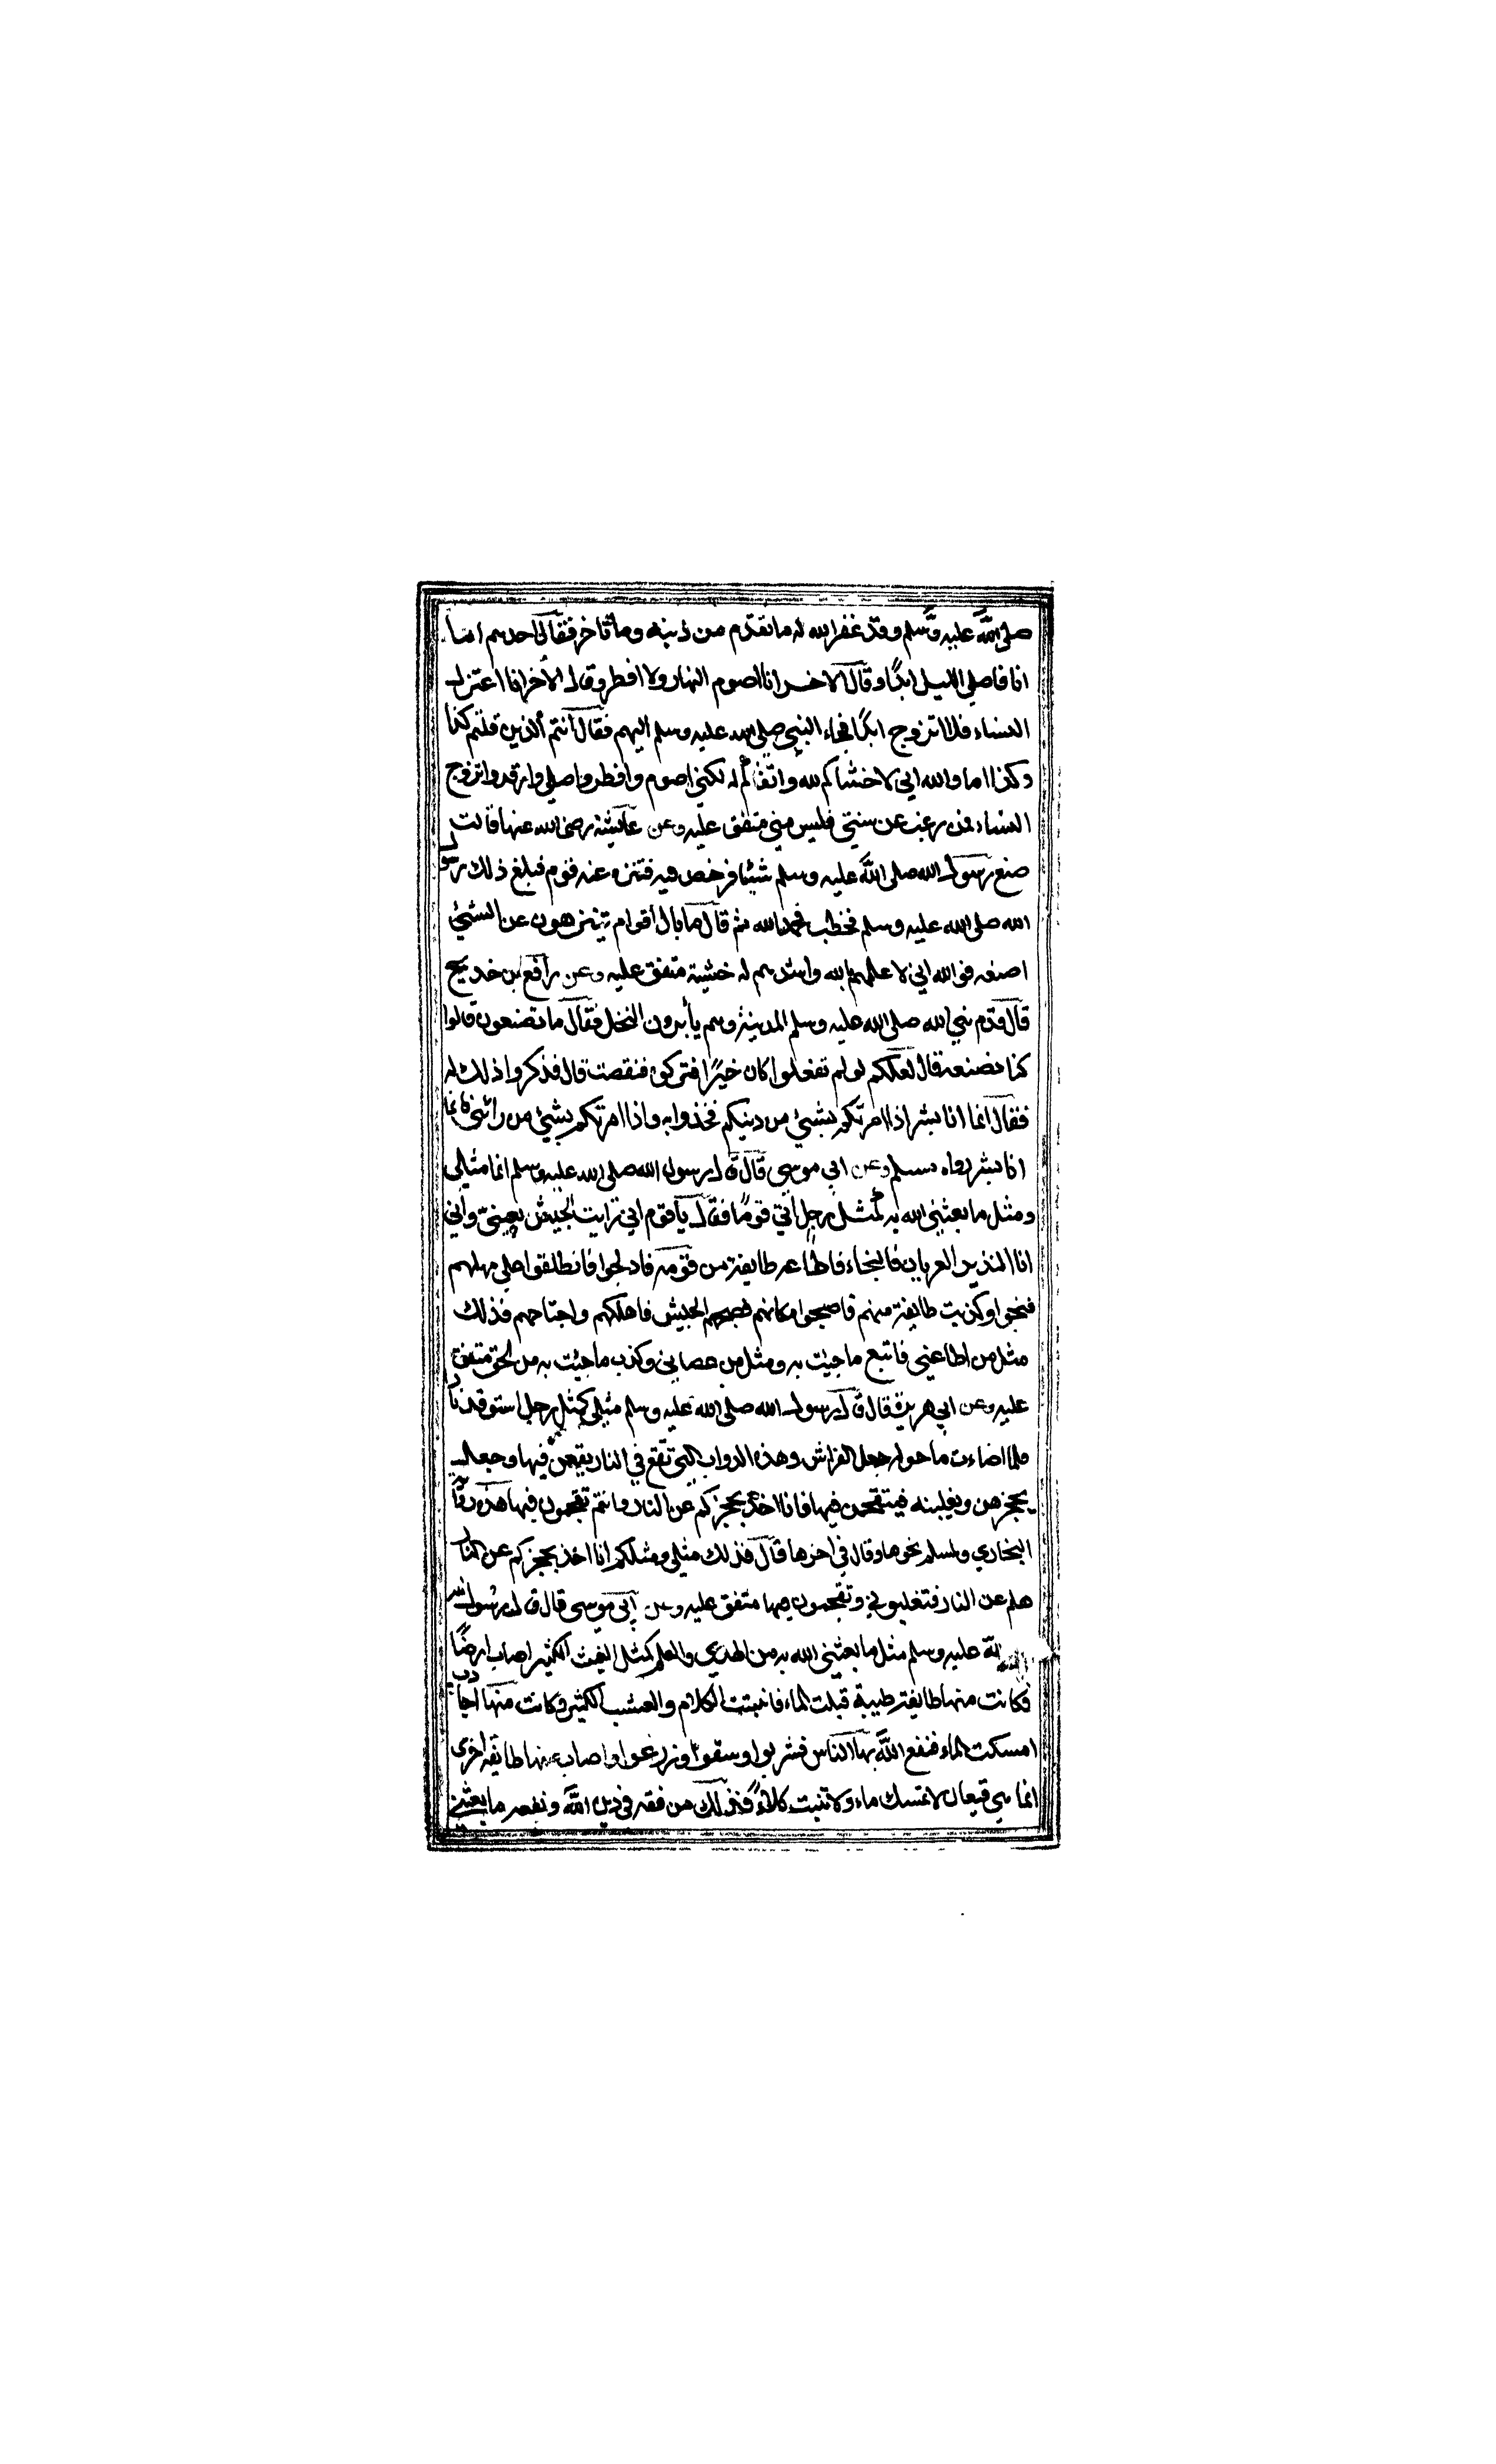 صلى الله عليه وسلم وقد غفر الله له ما تقدم من ذنبه وما تاخر فقال احدهم اما
انا فاصلي الليل ابدًا وقال الاخر انا اصوم النهار ولا افطر وقال الأخر انا اعتزل
النساء فلا اتزوج ابدًا فجاء النبي صلى الله عليه وسلم اليهم فقال أنتم ألذين قلتم كذا
وكذا اما والله اني لاخشاكم لله واتقاكم له لكني اصوم وافطر واصلي وارقد واتزوج
النساء فمن رغب عن سنتي فليس مني متفق عليه وعن عايشة رضى الله عنها قالت
صنع رسول الله صلى اللَّه عليه وسلم شيئا فرخص فيه فتنزه عنه قوم فبلغ ذلك رسول
الله صلى الله عليه وسلم فخطب فحمد الله ثم قال ما بال أقوام يتنزهون عن الشئ
اصنعه فوالله اني لاعلمهم بالله واشدهم له خشية متفق عليه وعن رافع بن خديج
قال قدم نبي الله صلى الله عليه وسلم المدينة وهم يأبرون النخل فقال ما تصنعون قالوا
كنا نصنعه قال لعلكم لو لم تفعلوا كان خيرًا فتركوه فنقصت قال فذكروا ذلك له
فقال انما انا بشر اذا امرتكم بشئ من دينكم فخذوا به واذا امرتكم بشئ من رائي فانما
انا بشر رواه مسلم وعن ابي موسى قال قال رسول الله صلى الله عليه وسلم انما مثلي
ومثل ما بعثني الله به كمثل رجل أتى قومًا فقال يا قوم اني رايت الجيش بعينيّ واني
انا النذير العريان فالنجاء فاطاعه طايفة من قومه فادلجوا فانطلقوا على مهلهم
فنجوا وكذبت طايفة منهم فاصبحوا مكانهم فصبحهم الجيش فاهلكهم واجتاحهم فذلك
مثل من اطاعني فاتبع ما جيئت به ومثل من عصاني وكذب ما جيئت به من الحق متفق
عليه وعن ابي هريرة قال قال رسول الله صلى الله عليه وسلم مثلي كمثل رجل استوقد نارا
فلما اضاءت ما حوله جعل الفراش وهذه الدواب التي تقع في النار يقعن فيها وجعل
يحجزهن ويغلبنه فيتقحمن فيها فانا اخذ بحجزكم عن النار وانتم تقحمون فيها هذه رواية
البخاري ولمسلم نحوها وقال في اخرها قال فذلك مثلي ومثلكم انا اخذ بحجزكم عن النار
هلم عن النار فتغلبوني وتقحمون فيها متفق عليه وعن ابي موسى قال قال رسول الله
عليه وسلم مثل ما بعثني الله به من الهدي والعلم كمثل الغيث الكثير اصاب ارضًا
فكانت منها طايفة طيبة قبلت الماء فانبتت الكلاء والعشب الكثير وكانت منها اجادب
امسكت الماء فنفع اللَّه بها الناس فشربوا وسقوا وزرعوا واصاب منها طايفة اخرى
انما هي قيعان لا تمسك ماء ولا تنبت كلاءً فذلك من فقه في دين اللَّه ونفعه ما بعثني